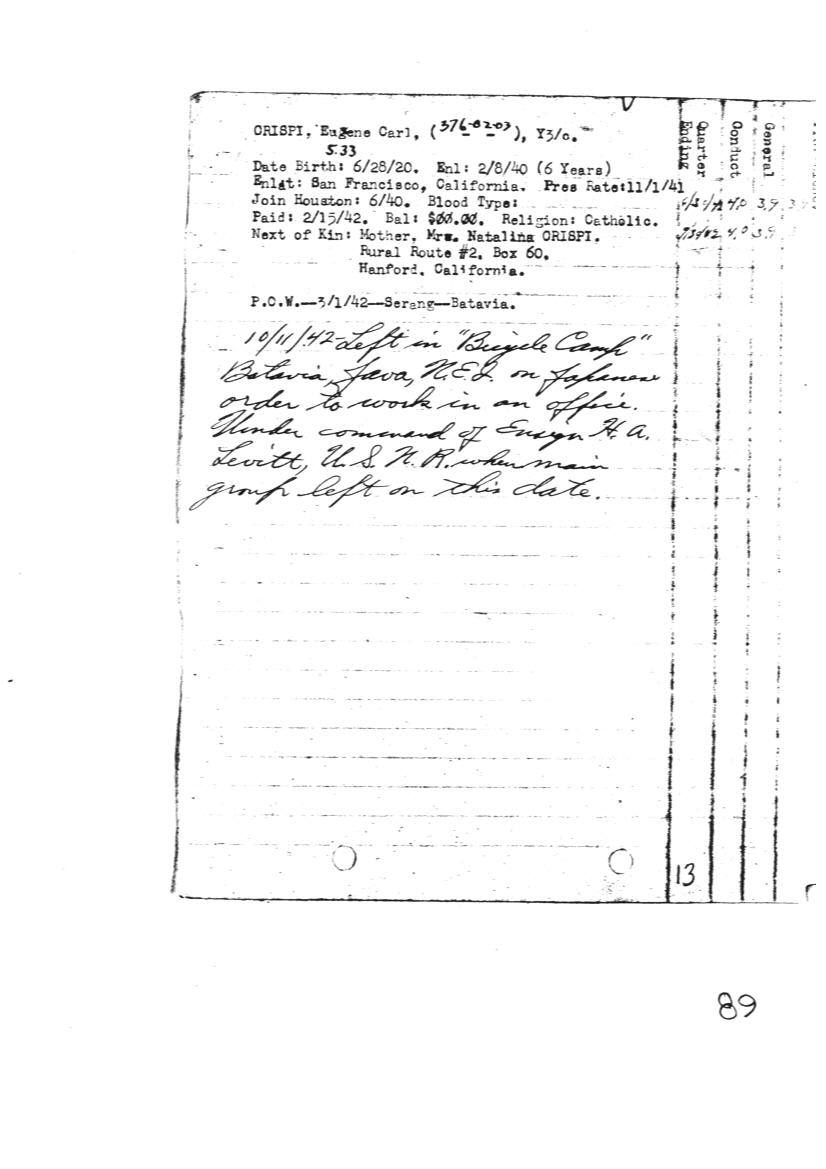 CRISPI, Eugene Carl, (376-02-03), Y3/c.
533
Date Birth: 6/28/20. Enl: 2/8/40 (6 Years)
Enlgt: San Francisco, California. Pres Rate:11/1/41
Join Houston: 6/40. Blood Type:
Paid: 2/15/42. Bal: $00.00. Religion: Catholic.
Next of Kin: Mother, Mrs. Natalina CRISPI.
Rural Route #2, Box 60.
Hanford, California.
P.O.W.--3/1/42--Serang--Batavia.
10/11/42-Left in "Bicycle Camp"
Batavia, Java, N.E.I. on Japanese
order to work in an office.
Under command of Ensign H. A.
Levitt, U. S. N. R. when main
group left on this date.
Quarter Ending
Conduct
General
4.0 3.9
4.0 3.9
13
89